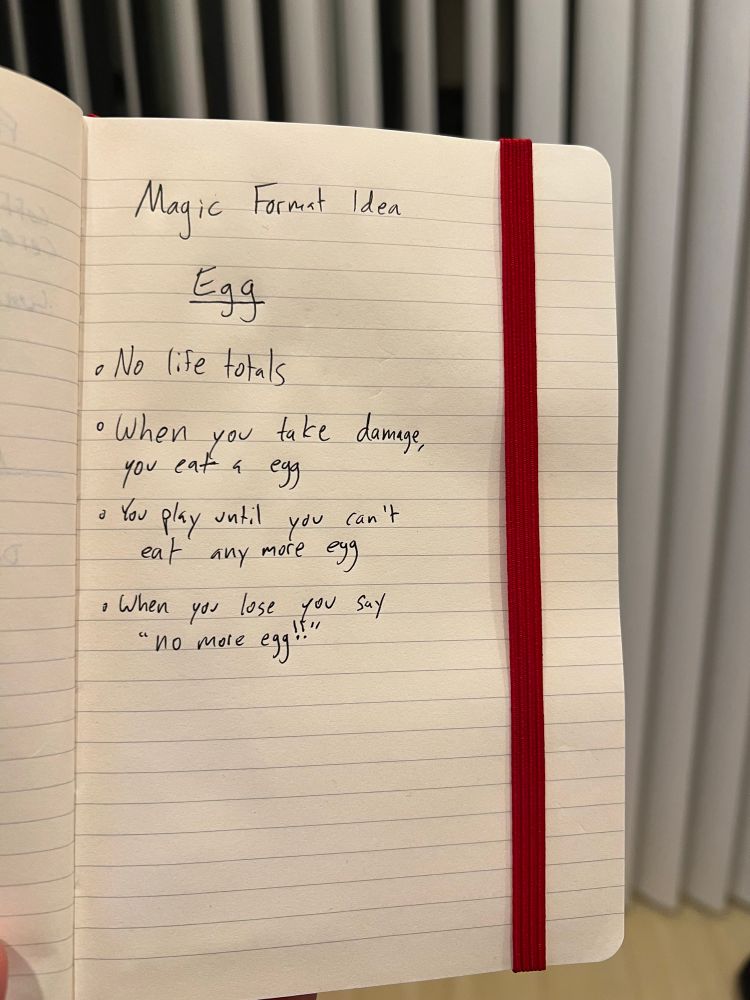 Magic Format Idea
Egg
• No life totals
• When you take damage,
you eat a egg
• You play until you can't
eat any more egg
• When you lose you say
"no more egg!!"